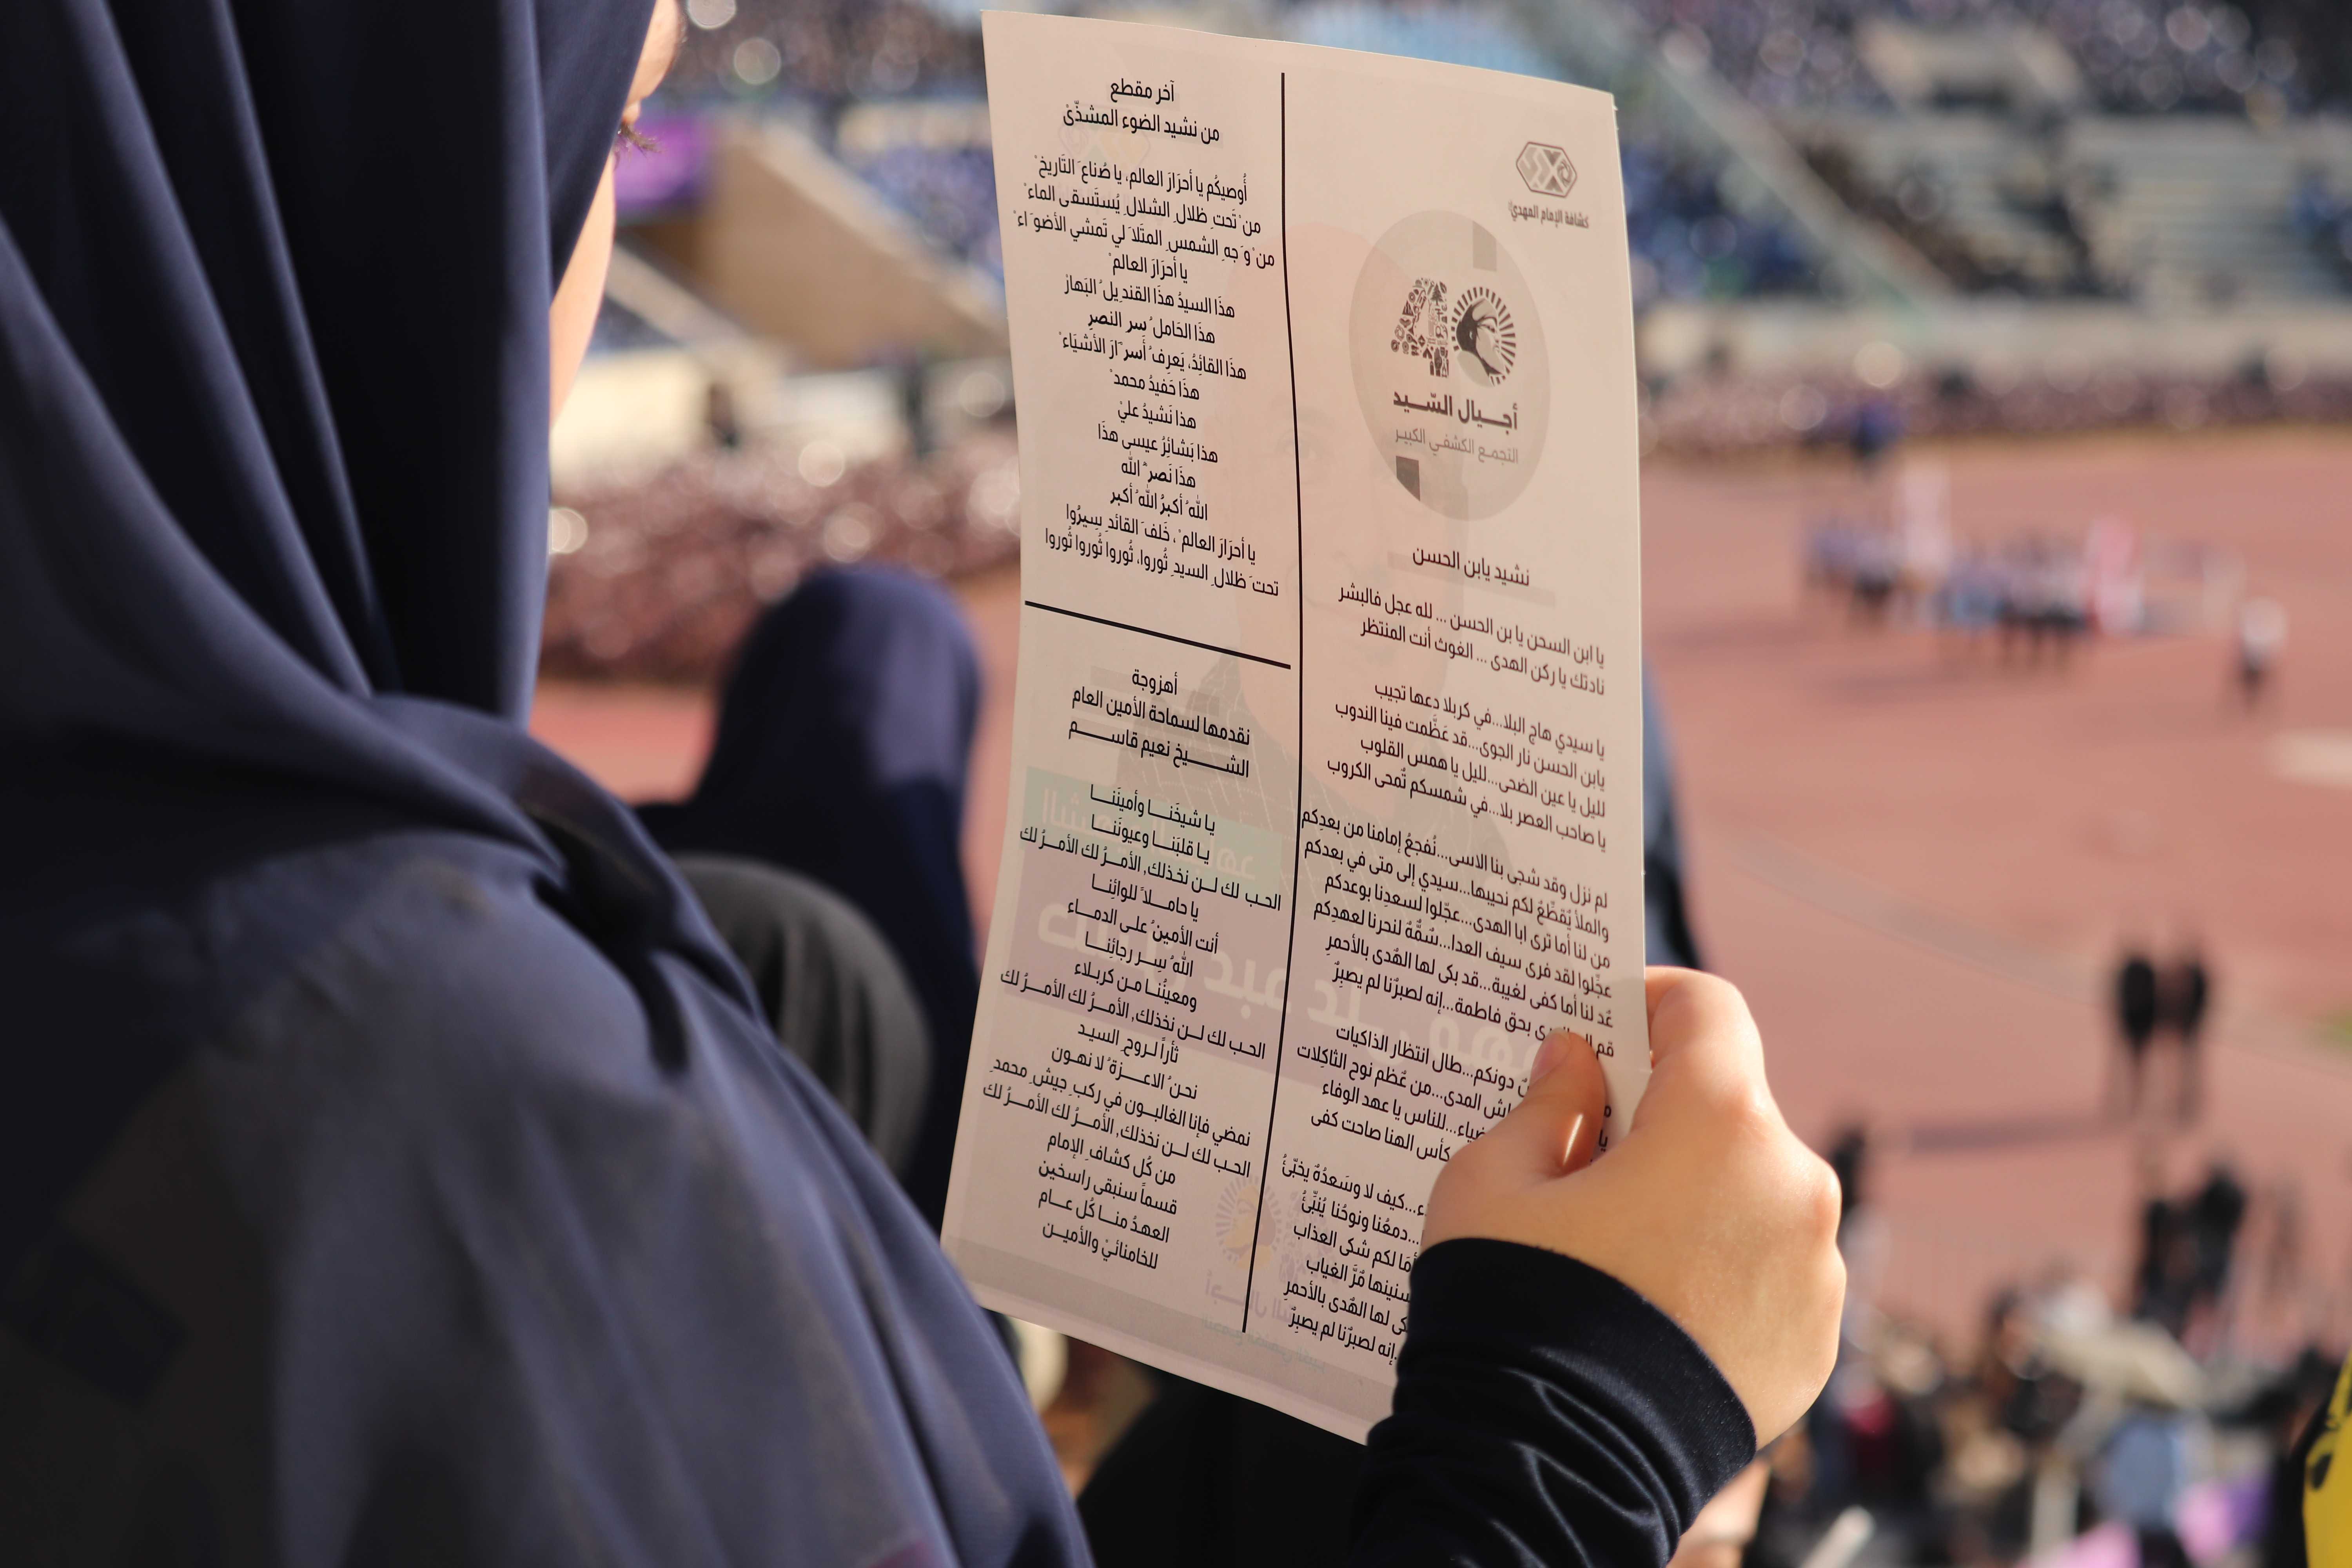 كشافة الإمام المهدي
40
أجيال السّيد
التجمع الكشفي الكبير
نشيد يابن الحسن
يا ابن السحن يا بن الحسن ... لله عجل فالبشر
نادتك يا ركن الهدى ... الغوث أنت المنتظر
يا سيدي هاج البلا...في كربلا دعها تجيب
يابن الحسن نار الجوى...قد عَظَّمت فينا الندوب
لليل يا عين الضحى...لليل يا همس القلوب
يا صاحب العصر بلا...في شمسكم تُمحى الكروب
لم نزل وقد شجى بنا الاسى...نُفجعُ إمامنا من بعدِكم
والملأ يُقطِّعُ لكم نحيبها...سيدي إلى متى في بعدكم
من لنا أما ترى ابا الهدى...عجّلوا لسعدِنا بوعدكم
عجِّلوا لقد فرى سيف العدا...سُمُّهُ لنحرنا لعهدِكم
عُد لنا أما كفى لغيبة...قد بكى لها الهُدى بالأحمرِ
قم بحق فاطمة...إنه لصبرُنا لم يصبرُ
دونكم...طال انتظار الذاكيات
المدى...من عُظم نوح الثاكِلات
ضياء...للناس يا عهد الوفاء
كأس الهنا صاحت كفى
...كيف لا وسَعدُهُ يخبّئُ
...دمعُنا ونوحُنا يُنبِّئُ
أمَا لكم شكى العذاب
سنينها مُرَّ الغياب
لها الهُدى بالأحمرِ
إنه لصبرُنا لم يصبِرُ
آخر مقطع
من نشيد الضوء المشذّىْ
أُوصيكُم يا أحرَارَ العالم، يا صُناعَ التَاريخْ
منْ تَحتِ ظلالِ الشلالِ يُستَسقى الماءْ
منْ وَجهِ الشمسِ المتَلألي تَمشي الأضوَاءْ
يا أحرَارَ العالمْ
هذَا السيدُ هذَا القنديلُ البَهارْ
هذَا الحَاملُ سر النصرِ
هذَا القائِدُ، يَعرِفُ أسرَارَ الأشيَاءْ
هذَا حَفيدُ محمدْ
هذا نَشيدُ عليْ
هذا بَشائِرُ عيسى هذَا
هذَا نَصرُ الله
اللهُ أكبرُ اللهُ أكبر
يا أحرَارَ العالمْ، خَلفَ القائدِ سِيرُوا
تحتَ ظلالِ السيدِ ثُوروا، ثُوروا ثُوروا ثُوروا
أهزوجة
نقدمها لسماحة الأمين العام
الشيخ نعيم قاسم
يا شيخَنا وأمينَنا
يا قلبَنا وعيونَنا
الحب لك لن نخذلك, الأمرُ لك الأمرُ لك
يا حاملاً للوائِنا
أنت الأمينُ على الدماء
اللهُ سِر رجائِنا
ومعينُنا من كربلاء
الحب لك لن نخذلك, الأمرُ لك الأمرُ لك
ثأراً لروحِ السيد
نحنُ الاعزةُ لا نهون
نمضي فإنا الغالبون في ركبِ جيشِ محمدِ
الحب لك لن نخذلك, الأمرُ لك الأمرُ لك
من كُل كشافِ الإمام
قسماً سنبقى راسخين
العهدُ منا كُل عام
للخامنائيْ والأمين